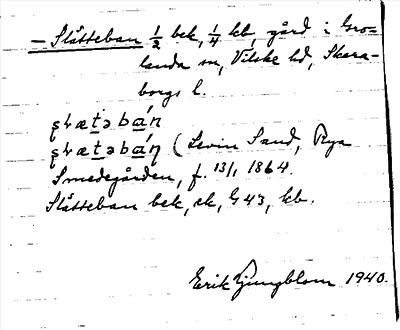 — Slätteban ½ bek, ¼ kb, gård i Gro-
landa sn, Vilske hd, Skara-
borgs l.
ʂɭætəbán
ʂɭætəbán (Levin Sand, Rya
Smedegården, f. 13/1 1864.
Slätteban bek, sk, G 43, kb.
Erik Ljungblom 1940.